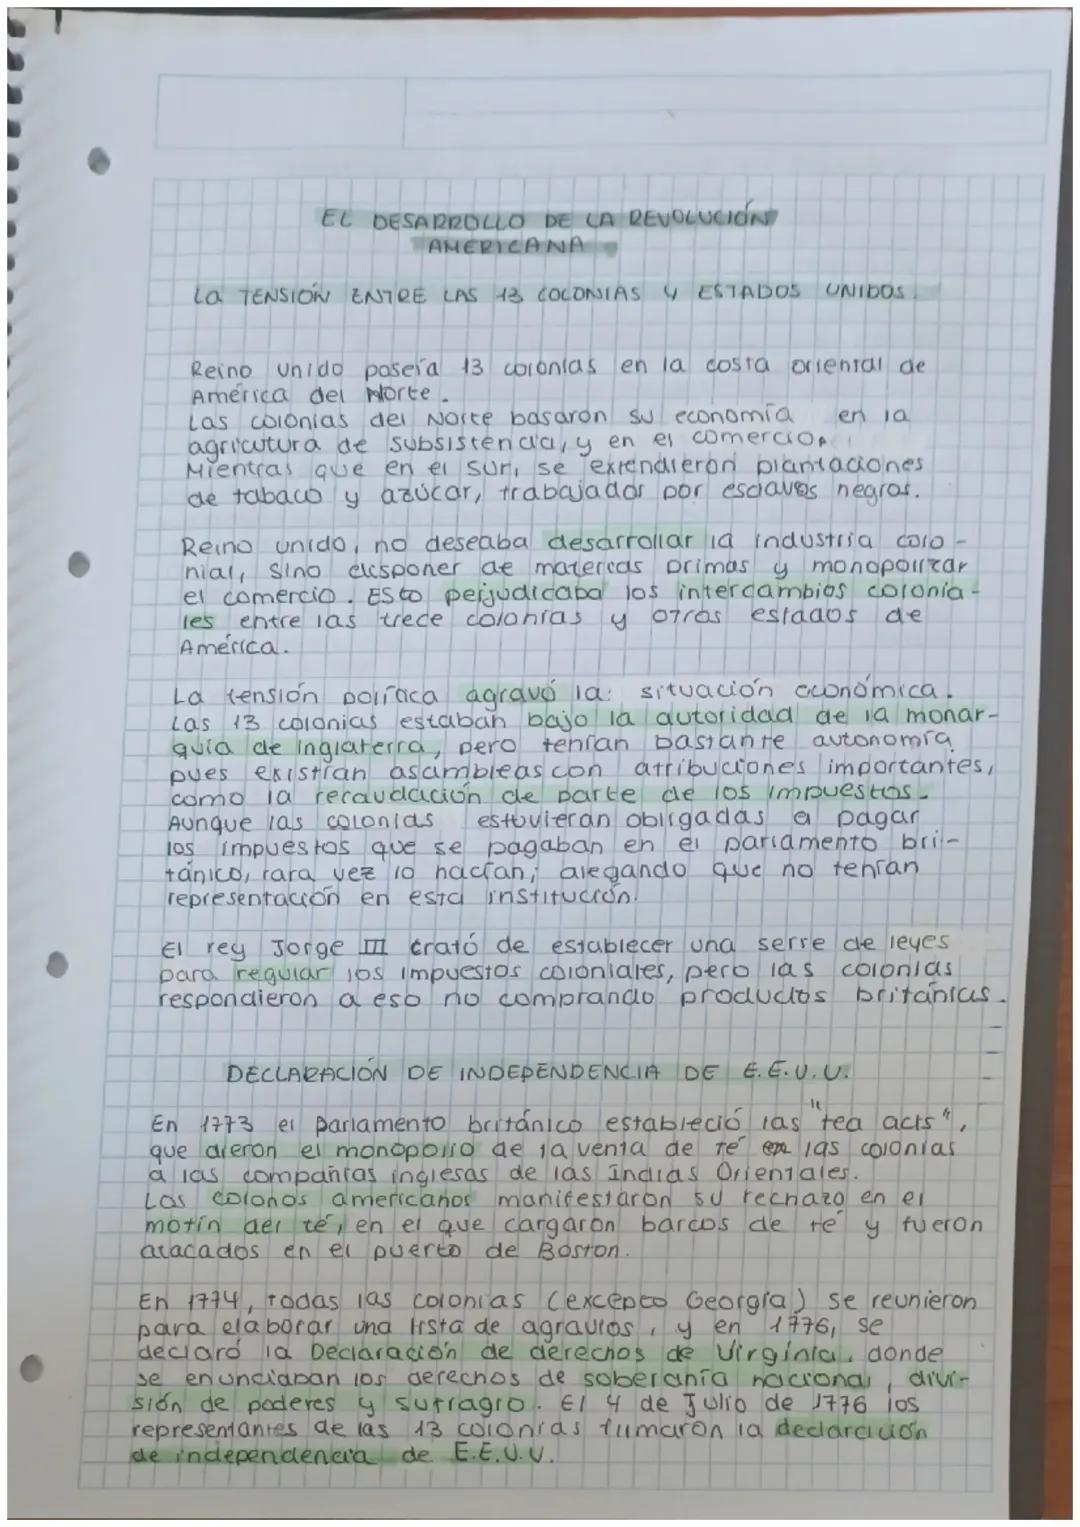 EL DESARROLLO DE LA REVOLUCIÓN
AMERICANA
LA TENSIÓN ENTRE LAS 13 COLONIAS Y ESTADOS UNIDOS.
Reino Unido poseía 13 colonias en la costa oriental de
América del Norte.
Las colonias del Norte basaron su economía en la
agricutura de subsistencia, y en el comercio.
Mientras que en el sur, se extendieron plantaciones
de tabaco y azúcar, trabajador por esclavos negros.
Reino unido, no deseaba desarrollar la industria colo-
nial, sino disponer de materias primas y monopolizar
el comercio. Esto perjudicaba los intercambios colonia-
les entre las trece colonias y otros estados de
América.
La tensión política agravó la situación económica.
Las 13 colonias estaban bajo la autoridad de la monar-
quía de Inglaterra, pero tenían bastante autonomía
pues existían asambleas con atribuciones importantes,
como la recaudación de parte de los impuestos.
Aunque las colonias estuvieran obligadas a pagar
los impuestos que se pagaban en el parlamento bri-
tánico, rara vez lo hacían, alegando que no tenían
representación en esta institución.
El rey Jorge III trató de establecer una serie de leyes
para regular los impuestos coloniales, pero las colonias
respondieron a eso no comprando productos británicas.
DECLARACIÓN DE INDEPENDENCIA DE E.E.U.U.
En 1773 el Parlamento británico estableció las "tea acts",
que dieron el monopolio de la venta de té en las colonias
a las compañías inglesas de las Indias Orientales.
Los colonos americanos manifestaron su rechazo en el
motín del té, en el que cargaron barcos de té y fueron
atacados en el puerto de Boston.
En 1774, todas las colonias (excepto Georgia) se reunieron
para elaborar una lista de agravios, y en 1776, se
declaró la Declaración de derechos de Virginia, donde
se enunciaban los derechos de soberanía nacional, divi-
sión de poderes y sufragio. El 4 de Julio de 1776 los
representantes de las 13 colonias firmaron la declaración
de independencia de E.E.U.U.